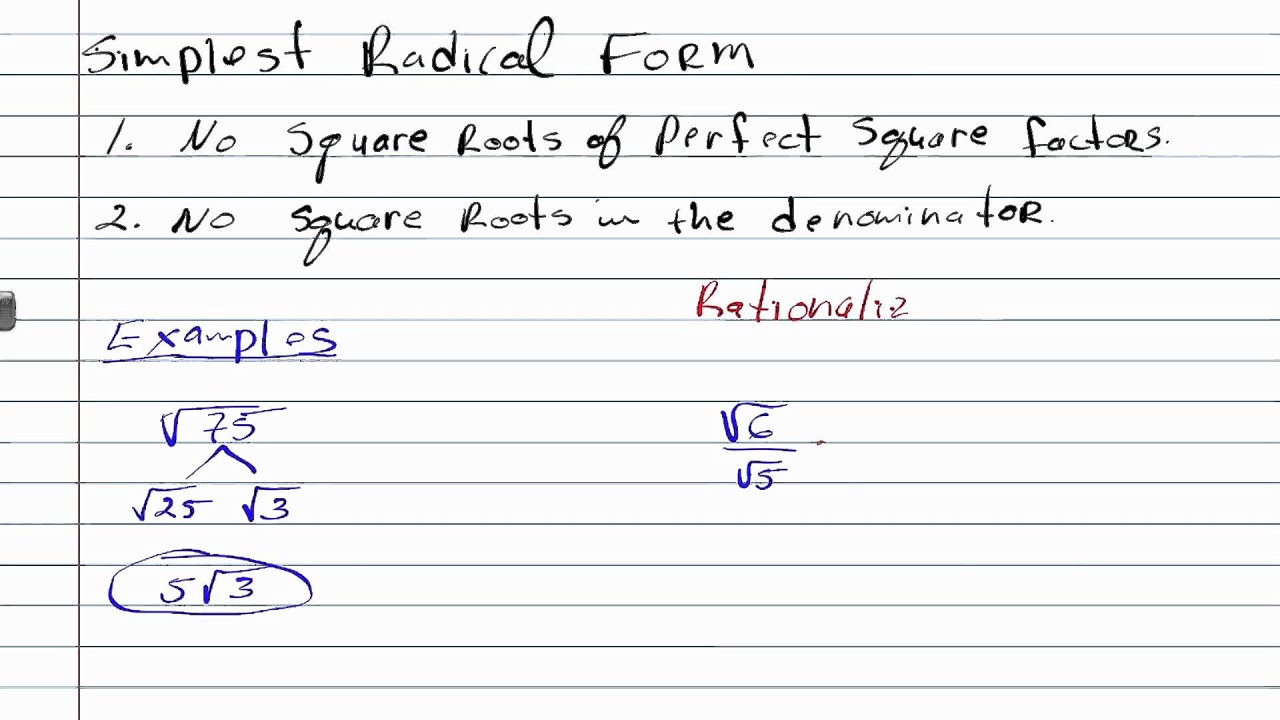 Simplest Radical Form
1. No Square Roots of Perfect Square factors.
2. No square Roots in the denominator.
Rationaliz
Examples
√75
√6
√5
√25 √3
5√3